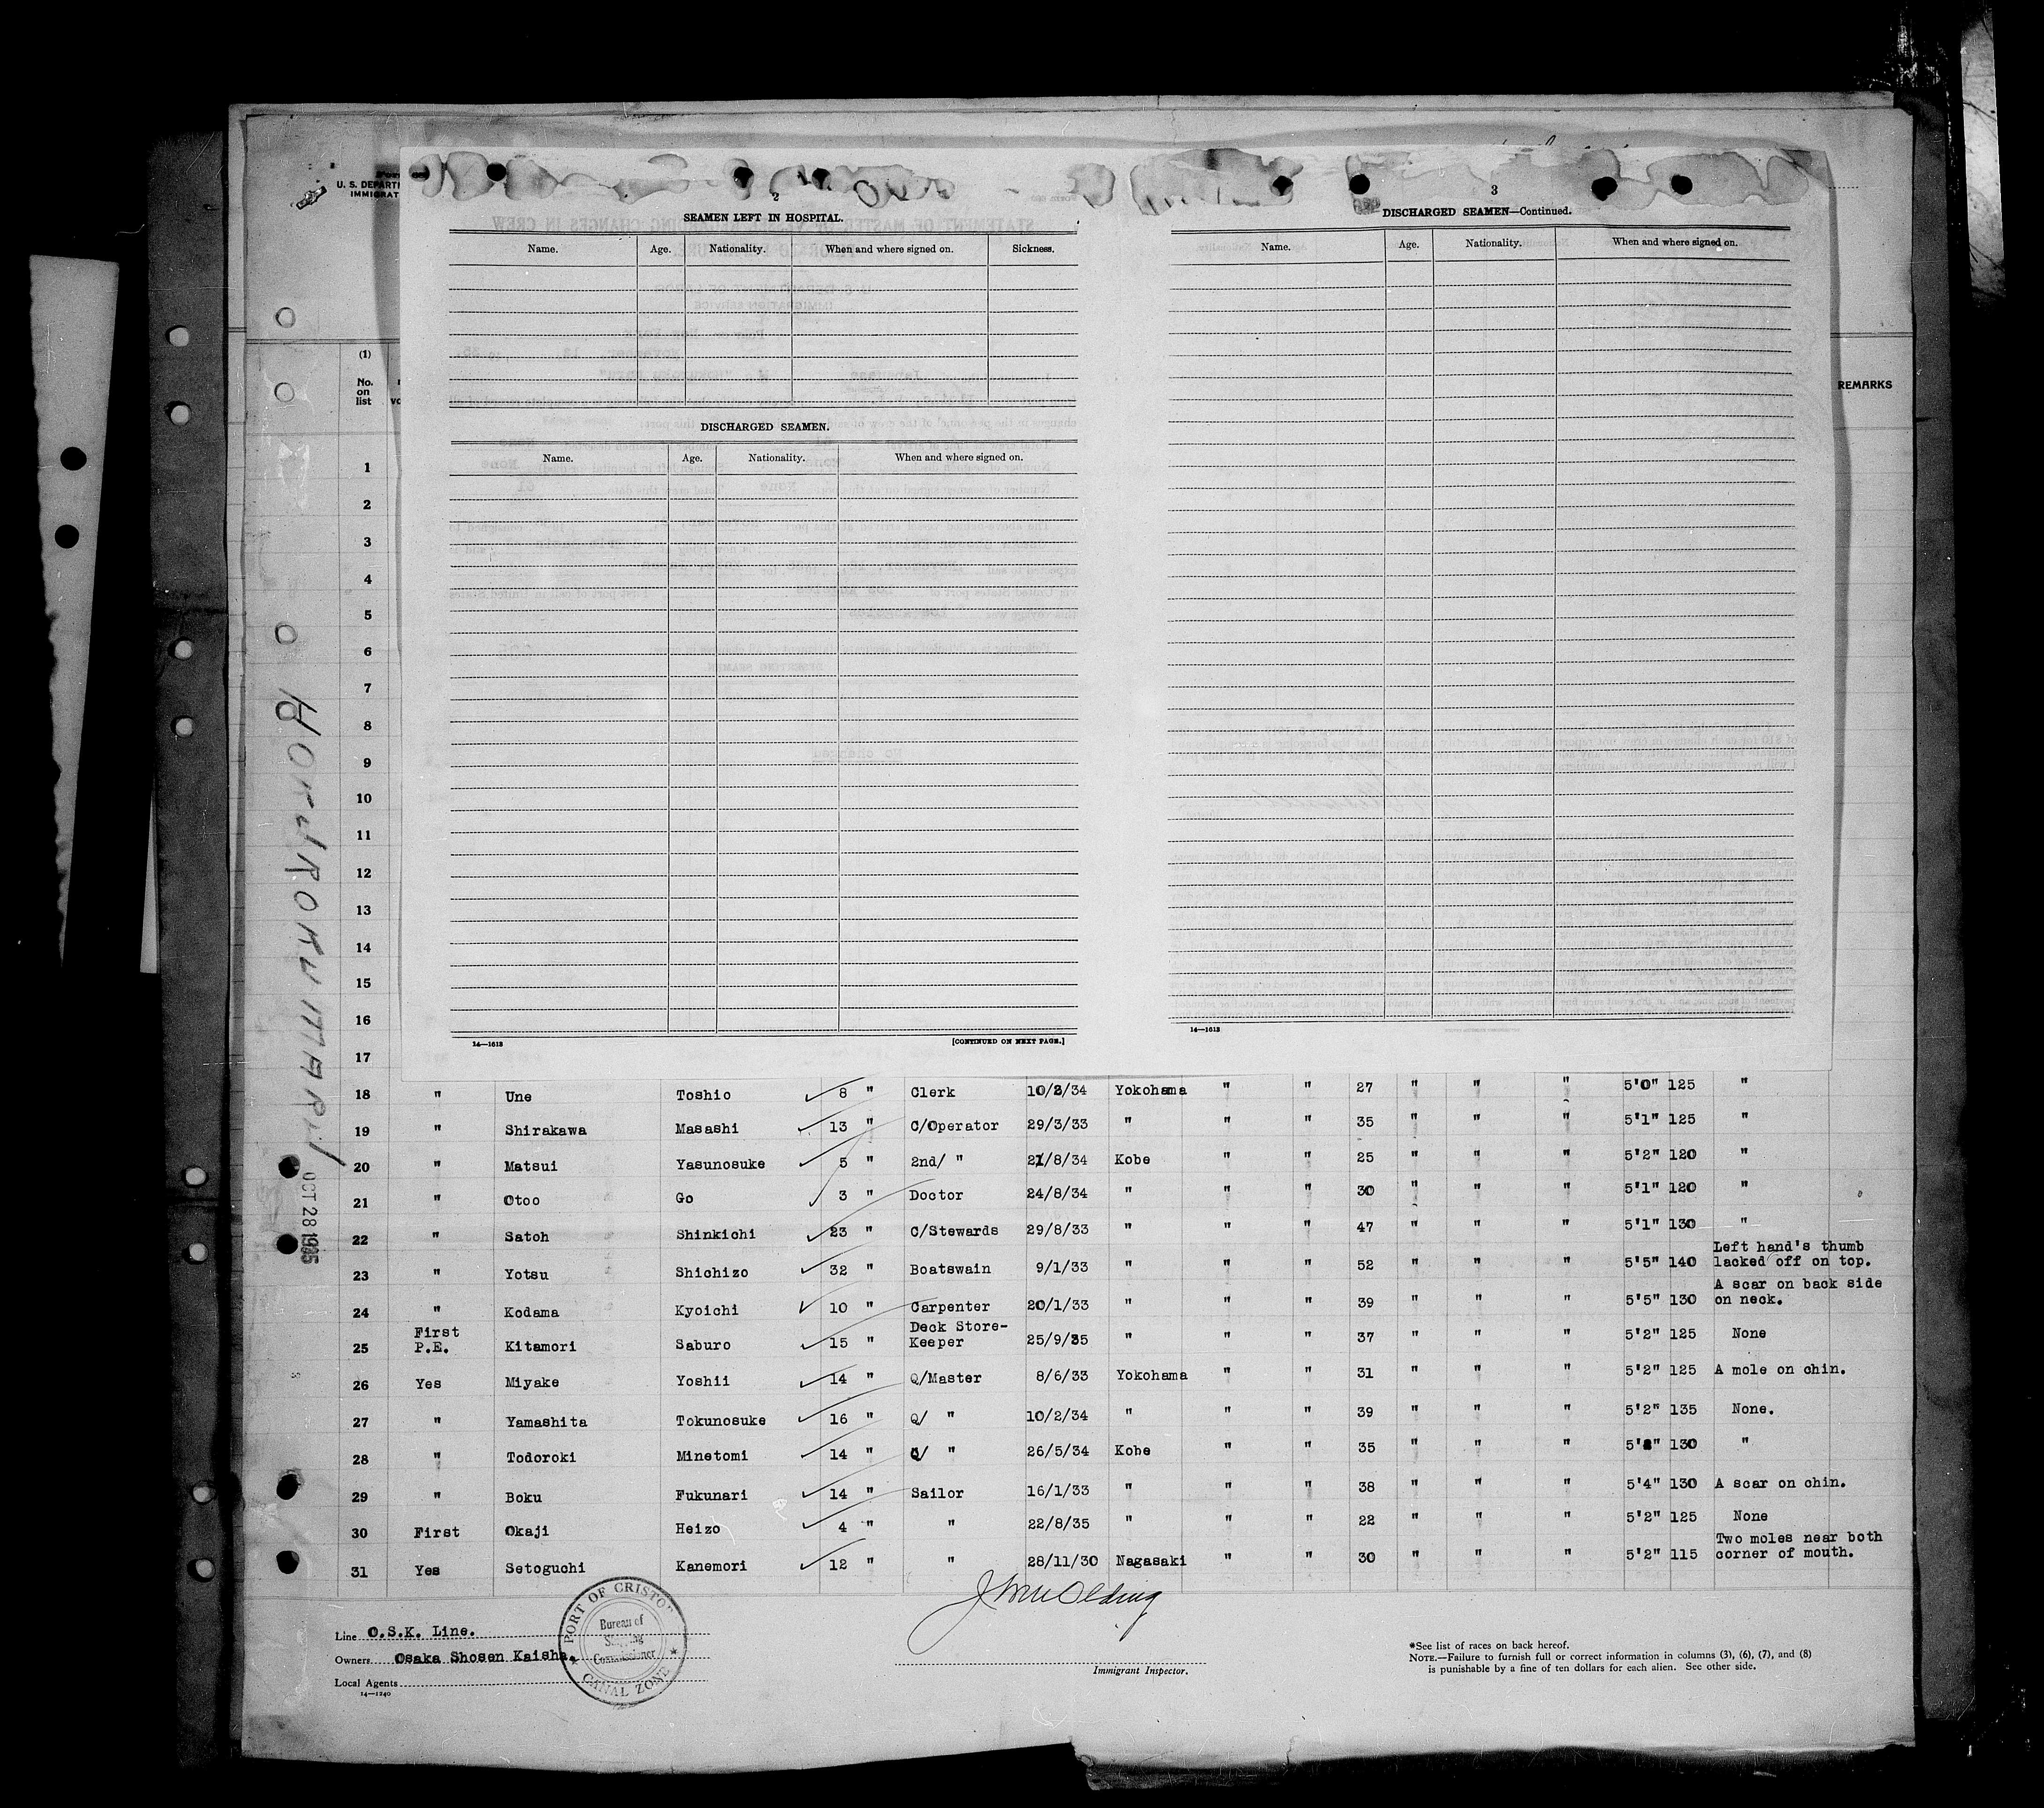 U. S. DEPARTM
IMMIGRAT
2
SEAMEN LEFT IN HOSPITAL.
Name. Age. Nationality. When and where signed on. Sickness.
DISCHARGED SEAMEN.
Name. Age. Nationality. When and where signed on.
14—1613 [CONTINUED ON NEXT PAGE.]
3
DISCHARGED SEAMEN—Continued.
Name. Age. Nationality. When and where signed on.
14—1613
(1)
No.
on
list
REMARKS
1
2
3
4
5
6
7
8
9
10
11
12
13
14
15
16
17
18 " Une Toshio 8 " Clerk 10/2/34 Yokohama " " 27 " " " 5'0" 125 "
19 " Shirakawa Masashi 13 " C/Operator 29/3/33 " " " 35 " " " 5'1" 125 "
20 " Matsui Yasunosuke 5 " 2nd/ " 21/8/34 Kobe " " 25 " " " 5'2" 120 "
21 " Otoo Go 3 " Doctor 24/8/34 " " " 30 " " " 5'1" 120 "
22 " Satoh Shinkichi 23 " C/Stewards 29/8/33 " " " 47 " " " 5'1" 130 "
23 " Yotsu Shichizo 32 " Boatswain 9/1/33 " " " 52 " " " 5'5" 140 Left hand's thumb
lacked off on top.
24 " Kodama Kyoichi 10 " Carpenter 20/1/33 " " " 39 " " " 5'5" 130 A scar on back side
on neck.
25 First
P.E. Kitamori Saburo 15 " Deck Store-
Keeper 25/9/35 " " " 37 " " " 5'2" 125 None
26 Yes Miyake Yoshii 14 " Q/Master 8/6/33 Yokohama " " 31 " " " 5'2" 125 A mole on chin.
27 " Yamashita Tokunosuke 16 " Q/ " 10/2/34 " " " 39 " " " 5'2" 135 None.
28 " Todoroki Minetomi 14 " Q/ " 26/5/34 Kobe " " 35 " " " 5'2" 130 "
29 " Boku Fukunari 14 " Sailor 16/1/33 " " " 38 " " " 5'4" 130 A scar on chin.
30 First Okaji Heizo 4 " " 22/8/35 " " " 22 " " " 5'2" 125 None
31 Yes Setoguchi Kanemori 12 " " 28/11/30 Nagasaki " " 30 " " " 5'2" 115 Two moles near both
corner of mouth.
HOKUROKU MARU
OCT 28 1935
Line O.S.K. Line.
Owners Osaka Shosen Kaisha.
Local Agents
14—1240
PORT OF CRISTO
Bureau of
Shipping
Commissioner
CANAL ZONE
Immigrant Inspector.
*See list of races on back hereof.
NOTE.—Failure to furnish full or correct information in columns (3), (6), (7), and (8)
is punishable by a fine of ten dollars for each alien. See other side.